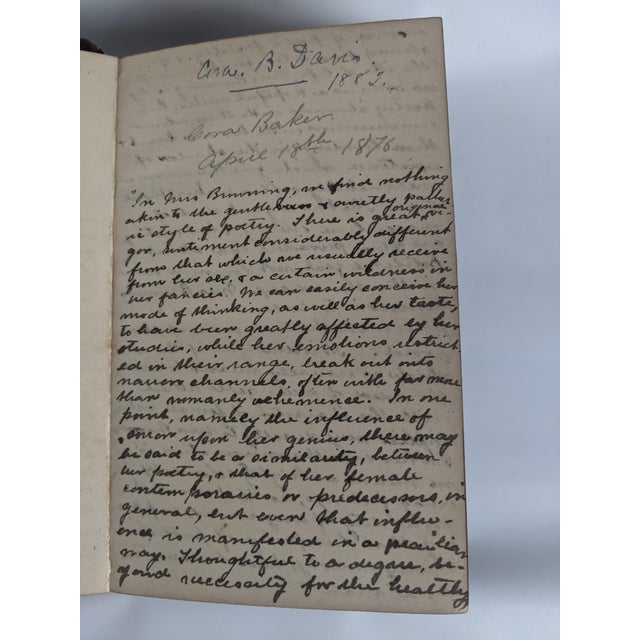 Cora. B. Davis.
1882.
Cora Baker
April 18th 1876
"In Mrs Browning, we find nothing
akin to the gentleness & sweetly
ic style of poetry. There is great original vi-
gor, sentiment considerably different
from that which we usually receive
from her sex, & a certain wildness in
her fancies. We can easily conceive her
mode of thinking, as well as her taste,
to have been greatly affected by her
studies, while her emotions restrict-
ed in their range, break out into
narrow channels, often with far more
than womanly vehemence. In one
point, namely the influence of
sorrow upon her genius, there may
be said to be a similarity, between
her poetry, & that of her female
contemporaries or predecessors, in
general, but even that influ-
ence is manifested in a peculiar
way. Thoughtful to a degree, be-
yond necessity for the healthy